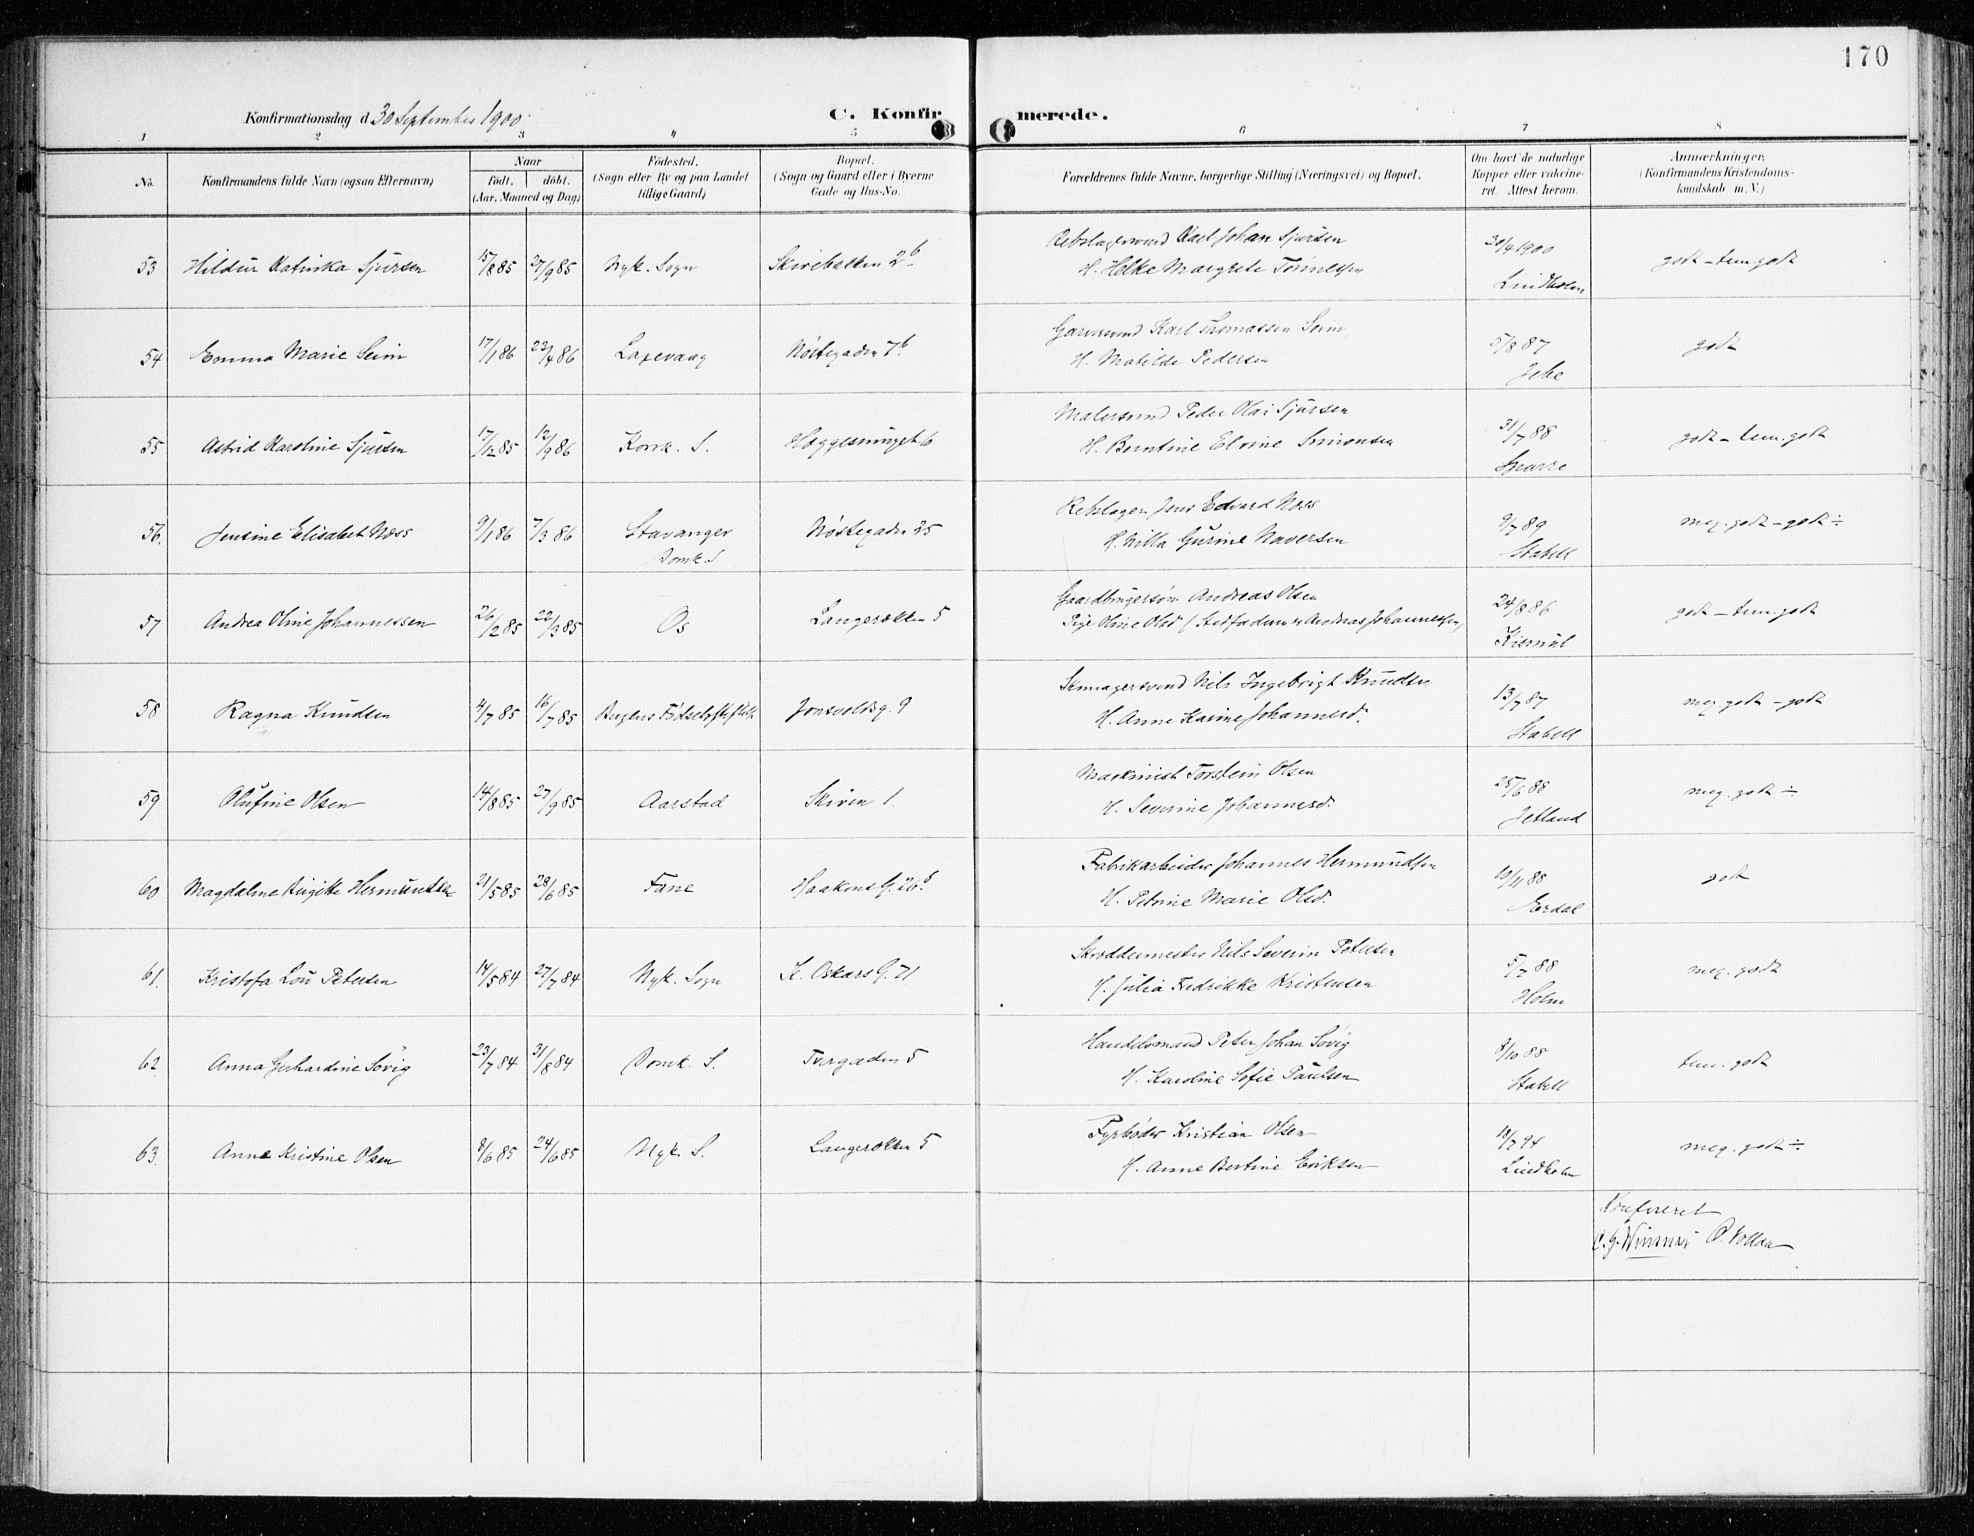 170
Konfirmationsdag d. 30 September 1900. C. Konfirmerede.
1 2 3 4 5 6 7 8
No.
Konfirmandens fulde Navn (ogsaa Efternavn)
Naar
födt. döbt.
(Aar, Maaned og Dag)
Födested.
(Sogn eller By og paa Landet
tillige Gaard)
Bopæl.
(Sogn og Gaard eller i Byerne
Gade og Hus-No.
Forældrenes fulde Navne, borgerlige Stilling (Næringsvei) og Bopæl.
Om havt de naturlige
Kopper eller vakcine-
ret. Attest herom.
Anmærkninger.
(Konfirmandens Kristendoms-
kundskab m. V.)
53 Hildur Katinka Sjursen 15/8 85 27/9 85 Nyk. Sogn Skivebakken 2b. Rebslagersvend Karl Johan Sjursen 20/4 1900 godt - tem. godt
H. Helke Margrete Tönnesen Lindholm
54 Emma Marie Seim 17/1 86 23/4 86 Laxevaag Nöstegaden 7b Garversvend Karl Thomassen Seim 5/8 87 godt
H. Matilde Pedersen Jebe
55 Astrid Karoline Sjursen 17/12 85 12/9 86 Korsk. S. Heggesmuget 6 Malersvend Peder Olai Sjursen 31/7 88 godt - tem. godt
H. Berntine Elvine Simonsen Sparre
56. Jensine Elisabet Næss 9/1 86 7/3 86 Stavanger Nöstegaden 25 Rebslager Jens Edvard Næss 9/7 89 meg. godt - godt ÷
Domk. S H. Nilla Gurine Naversen Stabell
57 Andrea Oline Johannessen 26/2 85 22/3 85 Os Langerækken 5 Gaardbrugersön Andreas Olsen 24/8 86 godt - tem. godt
Pige Oline Olsd. (Stedfaderen er Andreas Johannessen)
58 Ragna Knudsen 4/7 85 16/7 85 Jonsvoldsg. 9 Skomagersvend Nils Ingebrigt Knudsen 13/7 87 meg. godt - godt
H. Anne Karine Johannesd. Stabell
59 Olufine Olsen 14/8 85 27/9 85 Aarstad Skiven 1. Maskinist Torstein Olsen 25/6 88 meg. godt ÷
H. Severine Johannesd. Jetland
60 Magdalene Birgitte Hermundsen 21/5 85 28/6 85 Fane Haakons G. 26b. Fabrikarbeider Johannes Hermundsen 10/11 88 godt
H. Petrine Marie Olsd. Erdal
61. Kristofa Lou Petersen 14/5 84 27/7 84 Nyk. Sogn K. Oskars G. 71 Skreddermester Nils Severin Petersen 5/7 88 meg. godt
H. Julia Fredrikke Kristensen Holm
62. Anna Gerhardine Sövig 23/7 84 31/8 84 Domk. S. Tvergaden 5 Handelsmand Peter Johan Sövig 8/10 88 tem. godt
H. Karoline Sofie Paulsen Stabell
63. Anne Kristine Olsen 8/6 85 24/6 85 Nyk. S. Langerækken 5 Fyrböder Kristian Olsen 18/7 94 meg. godt ÷
H. Anne Bertine Eriksen Lindholm
Konfereret